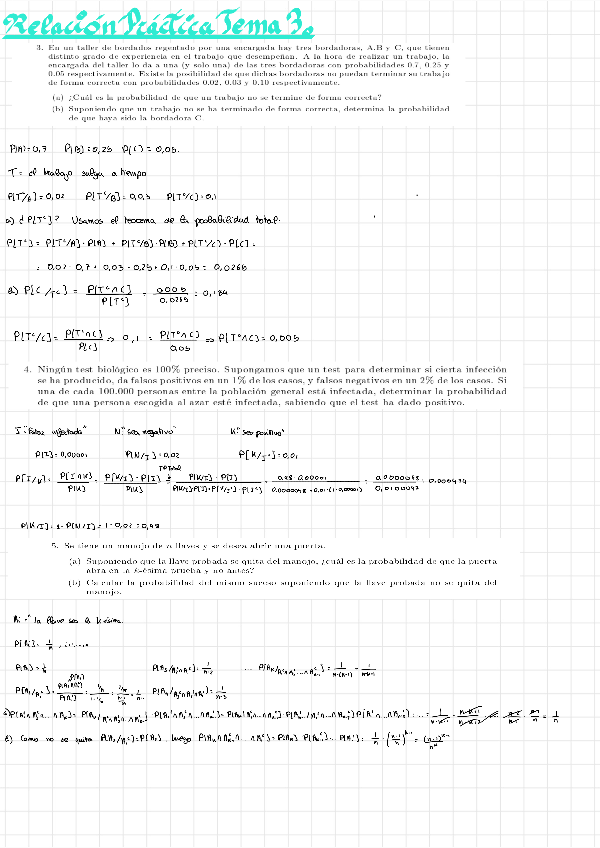 Relación Práctica Tema 3.
3. En un taller de bordados regentado por una encargada hay tres bordadoras, A,B y C, que tienen
distinto grado de experiencia en el trabajo que desempeñan. A la hora de realizar un trabajo, la
encargada del taller lo da a una (y solo una) de las tres bordadoras con probabilidades 0.7, 0.25 y
0.05 respectivamente. Existe la posibilidad de que dichas bordadoras no puedan terminar su trabajo
de forma correcta con probabilidades 0.02, 0.03 y 0.10 respectivamente.
(a) ¿Cuál es la probabilidad de que un trabajo no se termine de forma correcta?
(b) Suponiendo que un trabajo no se ha terminado de forma correcta, determina la probabilidad
de que haya sido la bordadora C.
P(A)=0,7 P(B)=0,25 P(C)=0,05.
T = el trabajo salga a tiempo
P[Tᶜ/A]=0,02 P[Tᶜ/B]=0,03 P[Tᶜ/C]=0,1
a) ¿P[Tᶜ]? Usamos el teorema de la probabilidad total.
P[Tᶜ] = P[Tᶜ/A]·P[A] + P[Tᶜ/B]·P[B] + P[Tᶜ/C]·P[C] =
= 0,02·0,7 + 0,03·0,25 + 0,1·0,05 = 0,0265
b) P[C/Tᶜ] = P[Tᶜ∩C] / P[Tᶜ] = 0,005 / 0,0265 = 0,184
P[Tᶜ/C] = P[Tᶜ∩C] / P[C] ⇒ 0,1 = P[Tᶜ∩C] / 0,05 ⇒ P[Tᶜ∩C] = 0,005
4. Ningún test biológico es 100% preciso. Supongamos que un test para determinar si cierta infección
se ha producido, da falsos positivos en un 1% de los casos, y falsos negativos en un 2% de los casos. Si
una de cada 100.000 personas entre la población general está infectada, determinar la probabilidad
de que una persona escogida al azar esté infectada, sabiendo que el test ha dado positivo.
I:"Estar infectado" N:"ser negativo" K:"ser positivo"
P[I]=0,00001 P[N/I]=0,02 P[K/Iᶜ]=0,01
TOTAL
P[I/K] = P[I∩K] / P[K] = P[K/I]·P[I] / P[K] = P[K/I]·P[I] / P[K/I]·P[I]+P[K/Iᶜ]·P[Iᶜ] = 0,98·0,00001 / 0,0000098+0,01·(1-0,00001) = 0,0000098 / 0,0100097 = 0,000979
P[K/I] = 1-P[N/I] = 1-0,02 = 0,98
5. Se tiene un manojo de n llaves y se desea abrir una puerta.
(a) Suponiendo que la llave probada se quita del manojo, ¿cuál es la probabilidad de que la puerta
abra en la k-ésima prueba y no antes?
(b) Calcular la probabilidad del mismo suceso suponiendo que la llave probada no se quita del
manojo.
la llave sea la k-ésima.